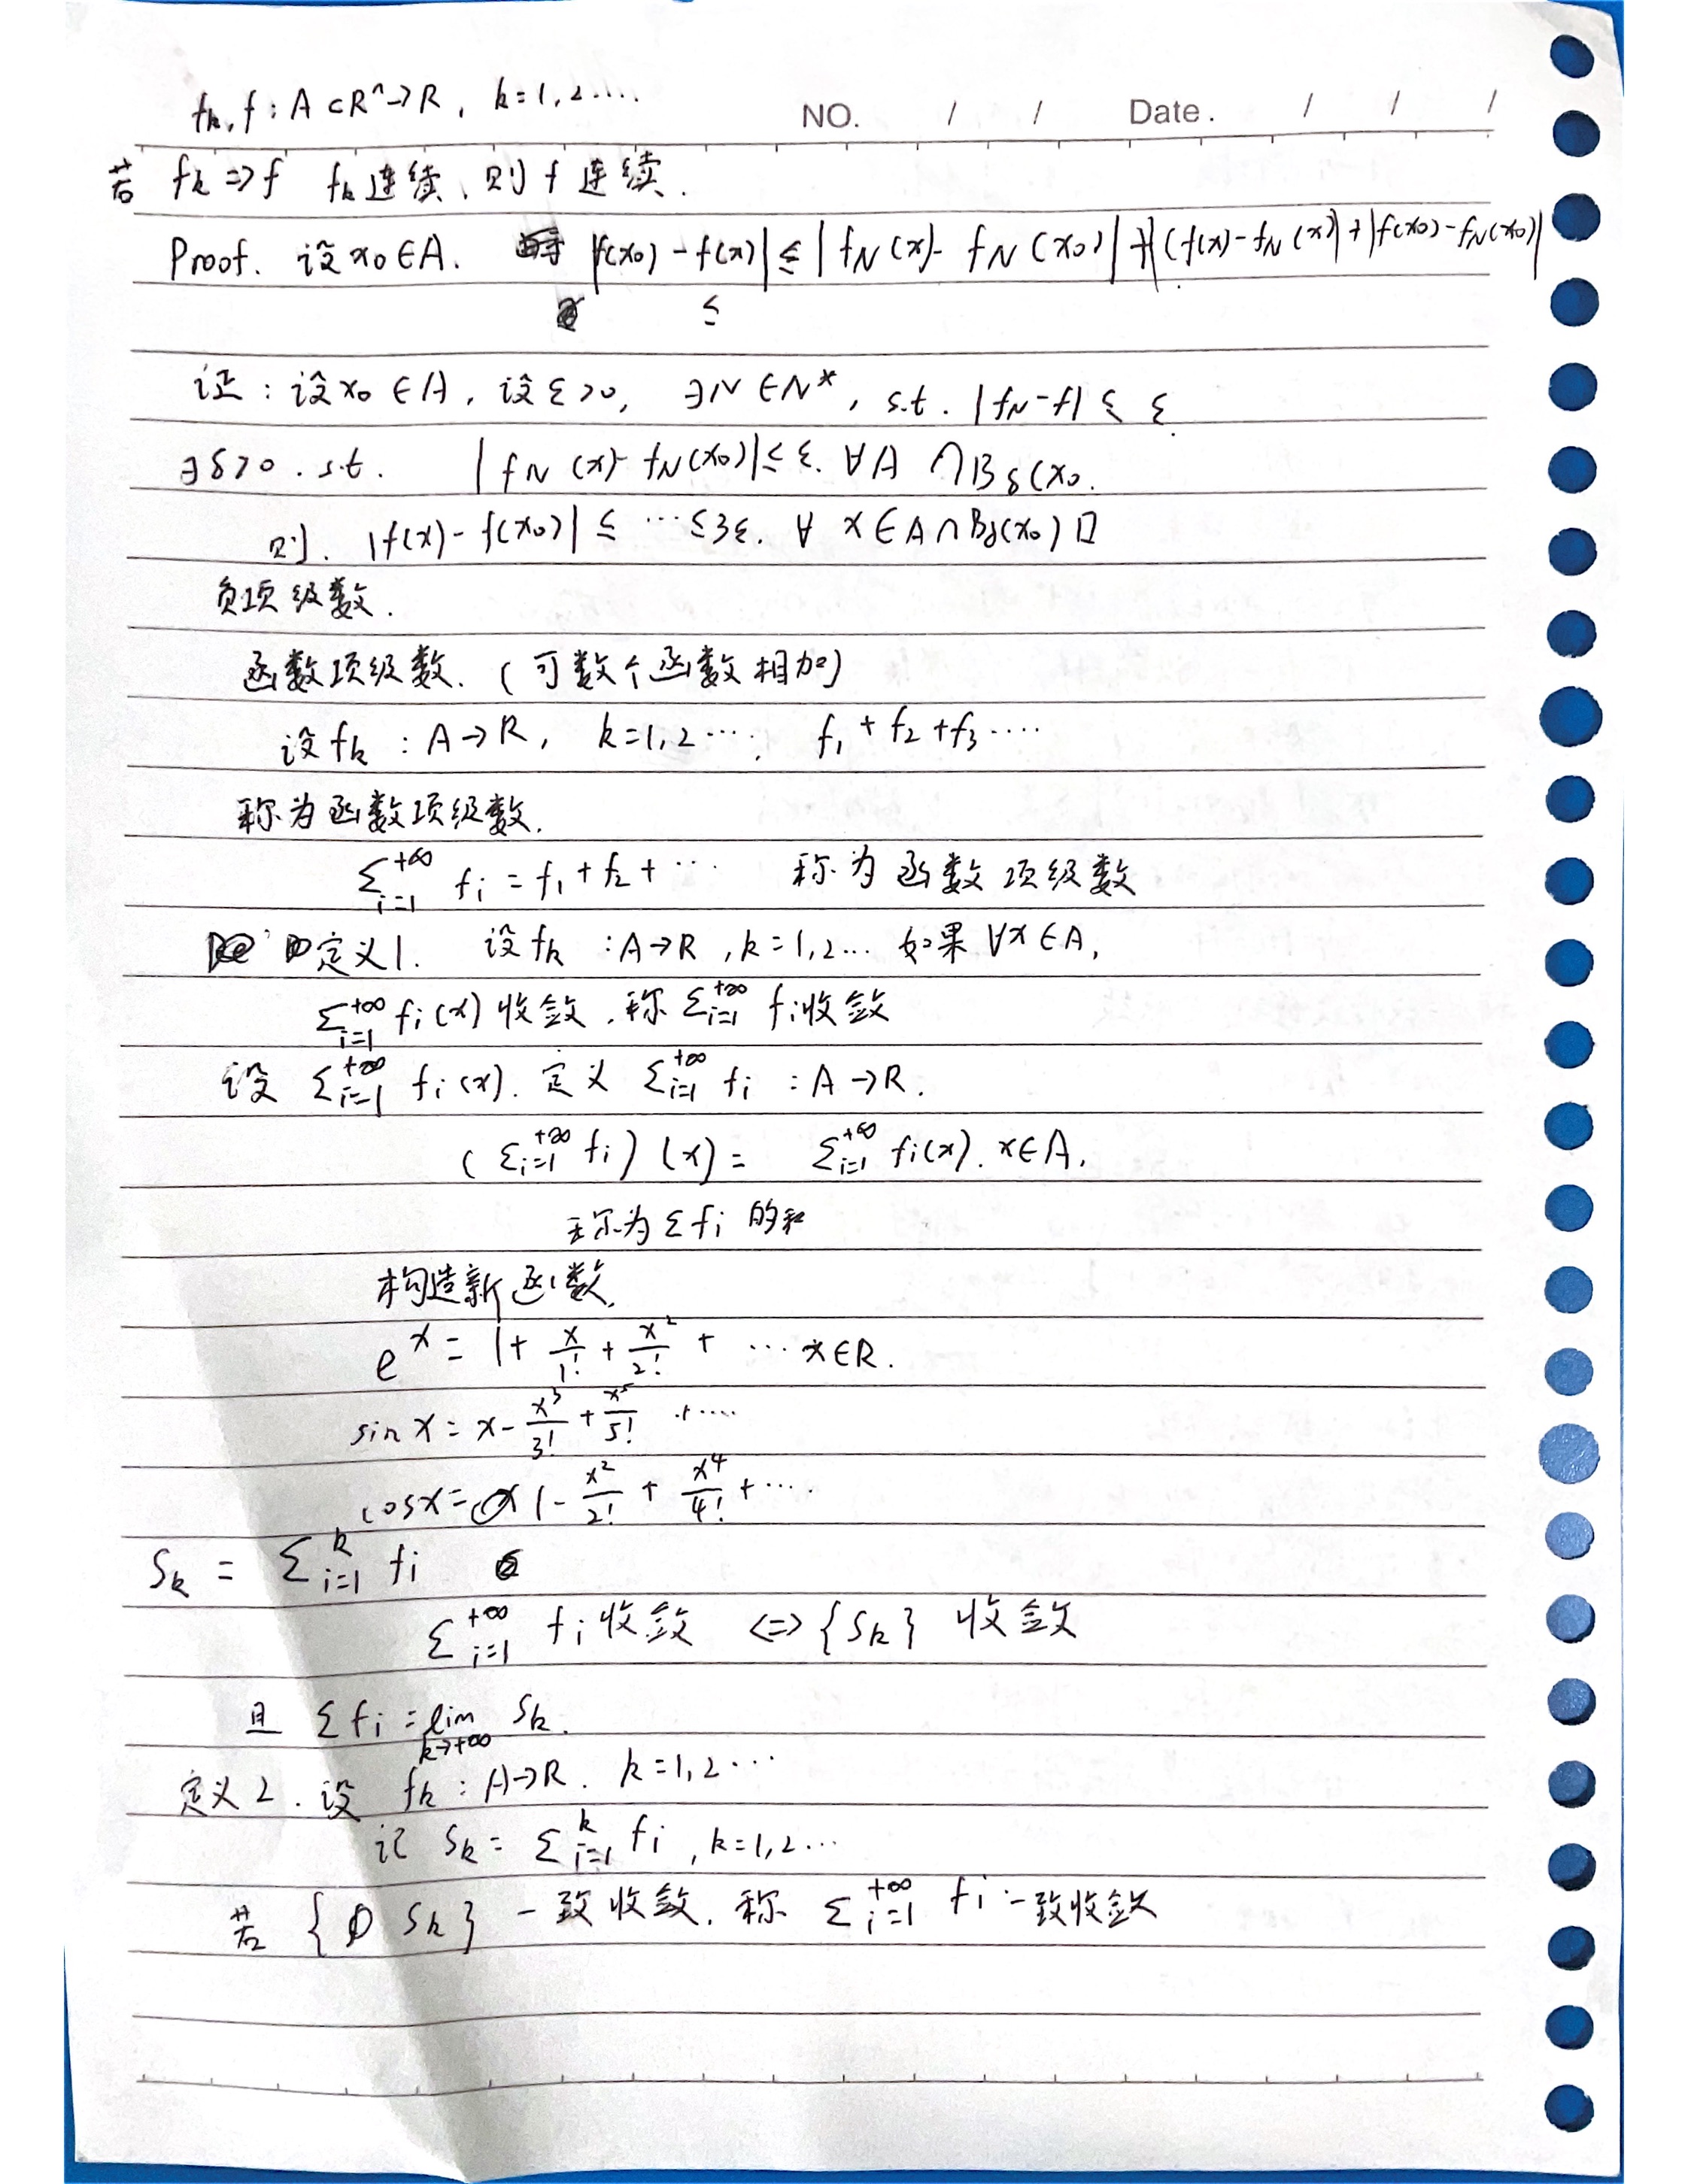 fk, f : A⊂Rⁿ→R, k=1,2....
NO. / / Date. / / /
若 fk⇒f fk连续、则f连续.
Proof. 设x0∈A. |f(x0)-f(x)|≤|fN(x)-fN(x0)|+|(f(x)-fN(x)|+|f(x0)-fN(x0)|
≤
证:设x0∈A, 设ε>0, ∃N∈N*, s.t. |fN-f|≤ε.
∃δ>0. s.t. |fN(x)-fN(x0)|≤ε. ∀A∩Bδ(x0.
则. |f(x)-f(x0)|≤…≤3ε. ∀ x∈A∩Bδ(x0) □
负项级数.
函数项级数. (可数个函数相加)
设fk : A→R, k=1,2…. f₁+f₂+f₃….
称为函数项级数.
Σ_{i=1}^{+∞} fi = f₁+f₂+… 称为函数项级数
定义1. 设fk : A→R, k=1,2… 如果∀x∈A,
Σ_{i=1}^{+∞} fi(x) 收敛. 称 Σ_{i=1}^{+∞} fi收敛
设 Σ_{i=1}^{+∞} fi(x). 定义 Σ_{i=1}^{+∞} fi : A→R.
(Σ_{i=1}^{+∞} fi)(x) = Σ_{i=1}^{+∞} fi(x). x∈A.
称为Σfi的和
构造新函数.
e^x = 1+x/1!+x²/2!+…x∈R.
sin x = x-x³/3!+x⁵/5! +….
cosx= 1-x²/2!+x⁴/4!+….
Sk = Σ_{i=1}^{k} fi
Σ_{i=1}^{+∞} fi收敛 <=> {Sk} 收敛
且 Σfi = lim_{k→+∞} Sk.
定义2. 设 fk : A→R. k=1,2…
记 Sk = Σ_{i=1}^{k} fi, k=1,2…
若 {Sk} 一致收敛. 称 Σ_{i=1}^{+∞} fi一致收敛